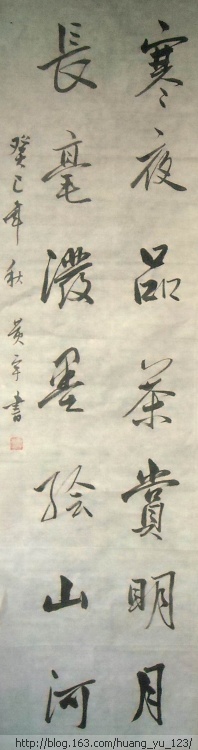 寒夜品茶賞明月
長毫潑墨繪山河
癸巳年秋 黄宇書
http://blog.163.com/huang_yu_123/